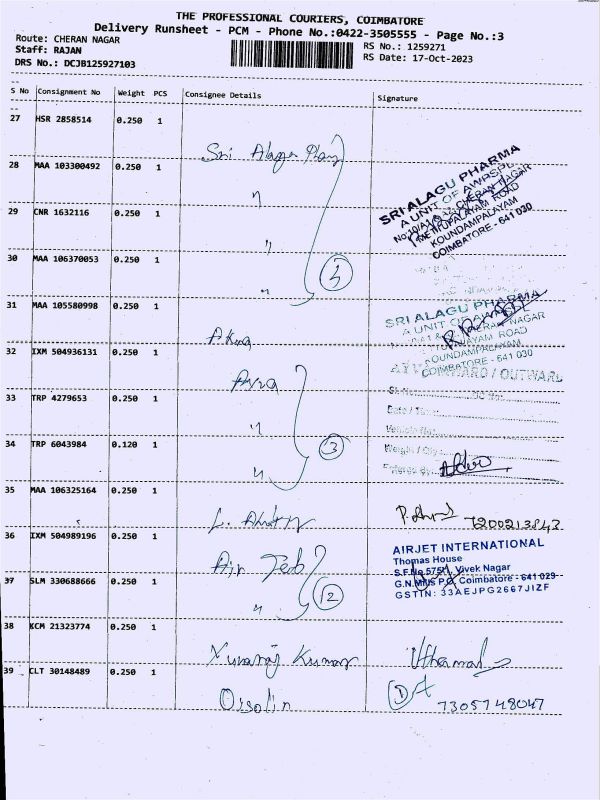 THE PROFESSIONAL COURIERS, COIMBATORE
Delivery Runsheet - PCM - Phone No.:0422-3505555 - Page No.:3
Route: CHERAN NAGAR
RS No.: 1259271
Staff: RAJAN
RS Date: 17-Oct-2023
DRS No.: DCJB125927103
S No Consignment No Weight PCS Consignee Details Signature
27 HSR 2858514 0.250 1
Sri Alagu
28 MAA 103300492 0.250 1
"
29 CNR 1632116 0.250 1
"
30 MAA 106370053 0.250 1
"
31 MAA 105580998 0.250 1
32 IXM 504936131 0.250 1
33 TRP 4279653 0.250 1
"
34 TRP 6043984 0.120 1
" 3
35 MAA 106325164 0.250 1
L.
36 IXM 504989196 0.250 1
Air
37 SLM 330688666 0.250 1
" 12
38 KCM 21323774 0.250 1
Yuvaraj Kumar
39 CLT 30148489 0.250 1
Orsolin
SRI ALAGU PHARMA
A UNIT OF AWPSPL
CHERAN NAGAR
METTUPALAYAM ROAD
KOUNDAMPALAYAM
COIMBATORE - 641 030
SRI ALAGU PHARMA
A UNIT OF
CHERAN NAGAR
KOUNDAMPALAYAM
COIMBATORE - 641 030
/ OUTWARD
Date / Time
Vehicle No
Weight / Qty
Entered By
7200213842
AIRJET INTERNATIONAL
Thomas House
S.F.No.575/1, Vivek Nagar
G.N.Mills P.O, Coimbatore - 641 029
GSTIN: 33AEJPG2667J1ZF
7305748047